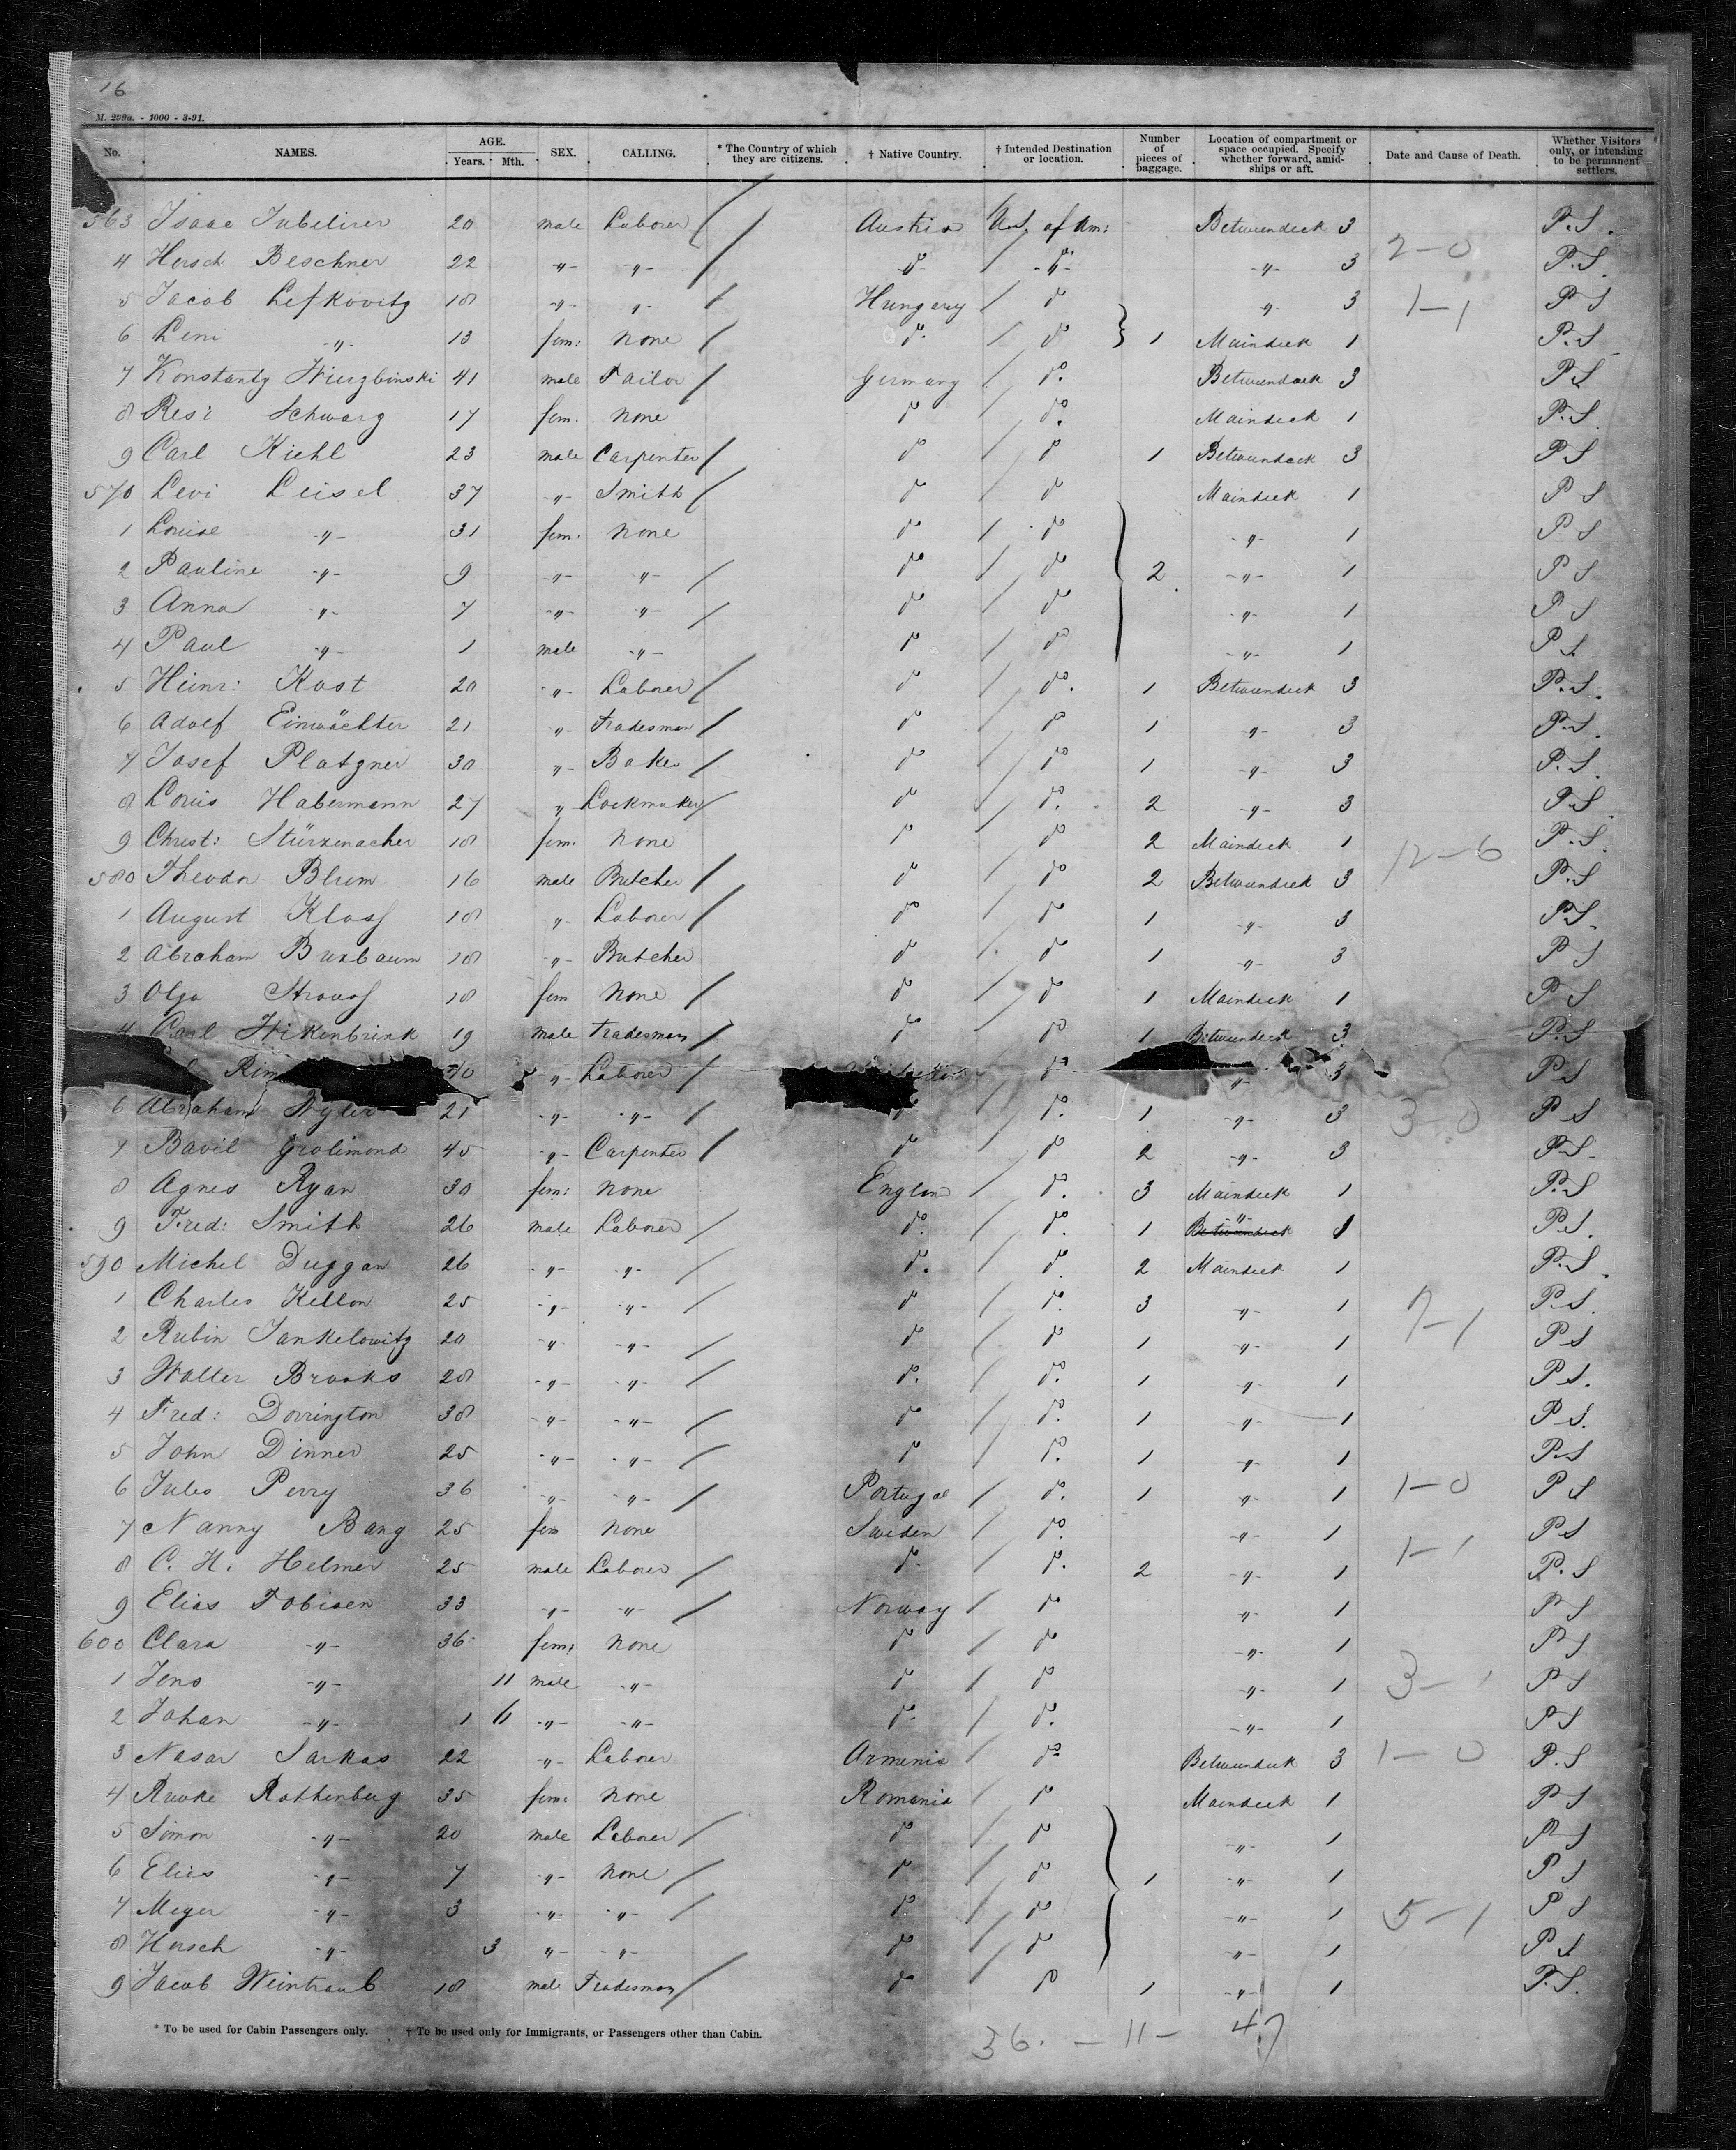 16
M. 298a. - 1000 - 3-91.
No. NAMES. AGE. Years. Mth. SEX. CALLING. * The Country of which they are citizens. † Native Country. † Intended Destination or location. Number of pieces of baggage. Location of compartment or space occupied. Specify whether forward, amidships or aft. Date and Cause of Death. Whether Visitors only, or intending to be permanent settlers.
563 Isaac Jubelirer 20 male Laborer / Austria U.S. of Am: Betweendeck 3 P.S.
4 Hersch Beschner 22 -"- -"- / do / -"- -"- 3 2-0 P.S.
5 Jacob Lefkovitz 18 -"- -"- / Hungary / do -"- 3 1-1 P S
6 Leni -"- 13 fem: None / do. / do } 1 Maindeck 1 P.S
7 Konstanty Wierzbinski 41 male Tailor / Germany / do. Betweendeck 3 P.S
8 Resi Schwarz 17 fem. None do / do. Maindeck 1 P.S.
9 Carl Kiehl 23 male Carpenter / do / do 1 Betweendeck 3 P S
570 Levi Leisel 37 -"- Smith / do / do Maindeck 1 P S
1 Louise -"- 31 fem. None do / do -"- 1 P S
2 Pauline -"- 9 -"- -"- / do / do 2 -"- 1 P S
3 Anna -"- 7 -"- -"- / do / do -"- 1 P S
4 Paul -"- 1 male -"- do / do -"- 1 P S.
5 Heinr: Kost 20 -"- Laborer / do / do. 1 Betweendeck 3 P.S.
6 Adolf Einwächter 21 -"- Tradesman / do / do 1 -"- 3 P.S.
7 Josef Platzner 30 -"- Baker / do / do 1 -"- 3 P.S.
8 Louis Habermann 27 " Lockmaker / do / do. 2 -"- 3 P.S.
9 Christ: Stürzenacher 18 fem. None do / do 2 Maindeck 1 P.S.
580 Theodor Blum 16 male Butcher / do / do 2 Betweendeck 3 12-6 P.S
1 August Kloss 18 -"- Laborer / do / do 1 -"- 3 P.S.
2 Abraham Buxbaum 18 -"- Butcher do / do 1 -"- 3 P S
3 Olga Strauss 18 fem None / do / do 1 Maindeck 1 P S
4 Carl Wikenbrink 19 male Tradesman / do / do 1 Betweendeck 3 P.S
-"- Laborer / do -"- 3 P S
6 Abraham Wyler 21 -"- -"- / do / do. 1 -"- 3 3-0 P S
7 Bavil Grolimond 45 -"- Carpenter / do / do 2 -"- 3 P.S.
8 Agnes Ryan 30 fem: None England / do. 3 Maindeck 1 P.S
9 Fred: Smith 26 male Laborer / do. / do. 1 -"- Betweendeck 1 P.S.
590 Michel Duggan 26 -"- -"- / do. / do. 2 Maindeck 1 P.S.
1 Charles Kellon 25 -"- -"- / do / do. 3 -"- 1 7-1 P.S.
2 Rubin Jankelowitz 20 -"- -"- / do / do 1 -"- 1 P S
3 Walter Brooks 28 -"- -"- / do. / do. 1 -"- 1 P S.
4 Fred: Dorrington 38 -"- -"- / do / do. 1 -"- 1 P S.
5 John Dinner 25 -"- -"- / do / do. 1 -"- 1 P.S
6 Jules Perry 36 -"- -"- / Portugal / do. 1 -"- 1 1-0 P S
7 Nanny Bang 25 fem None Sweden / do. -"- 1 P S
8 C. H. Helmer 25 male Laborer / do. / do. 2 -"- 1 1-1 P.S
9 Elias Tobisen 33 -"- -"- / Norway / do -"- 1 P S
600 Clara -"- 36 fem: None do / do -"- 1 P S
1 Jens -"- 11 male -"- do / do -"- 1 3-1 P S
2 Johan -"- 1 6 -"- -"- do. / do. -"- 1 P S
3 Nasar Sarkas 22 -"- Laborer Armenia / do Betweendeck 3 1-0 P.S
4 Rivoke Rothenberg 35 fem: None Romania / do Maindeck 1 P S
5 Simon -"- 20 male Laborer / do / do -"- 1 P S
6 Elias -"- 7 -"- None / do / do 1 -"- 1 P S
7 Meyer -"- 3 -"- -"- / do / do -"- 1 5-1 P S
8 Hersch -"- 3 -"- -"- do / do -"- 1 P S
9 Jacob Weintraub 18 male Tradesman / do / do 1 -"- 1 P.S.
* To be used for Cabin Passengers only. † To be used only for Immigrants, or Passengers other than Cabin.
36. - 11 - 47